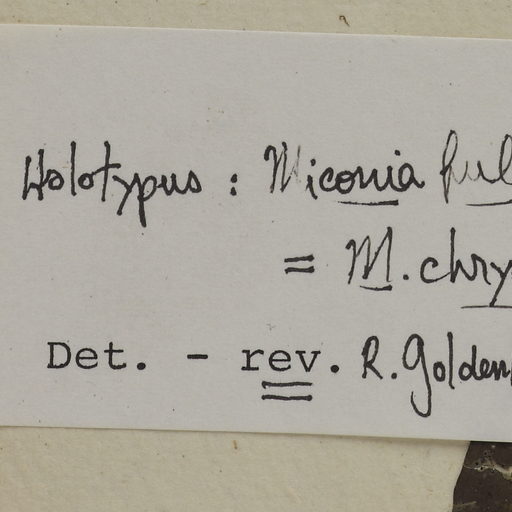 Holotypus : Miconia ful
= M. chry
Det. - rev. R. Golden